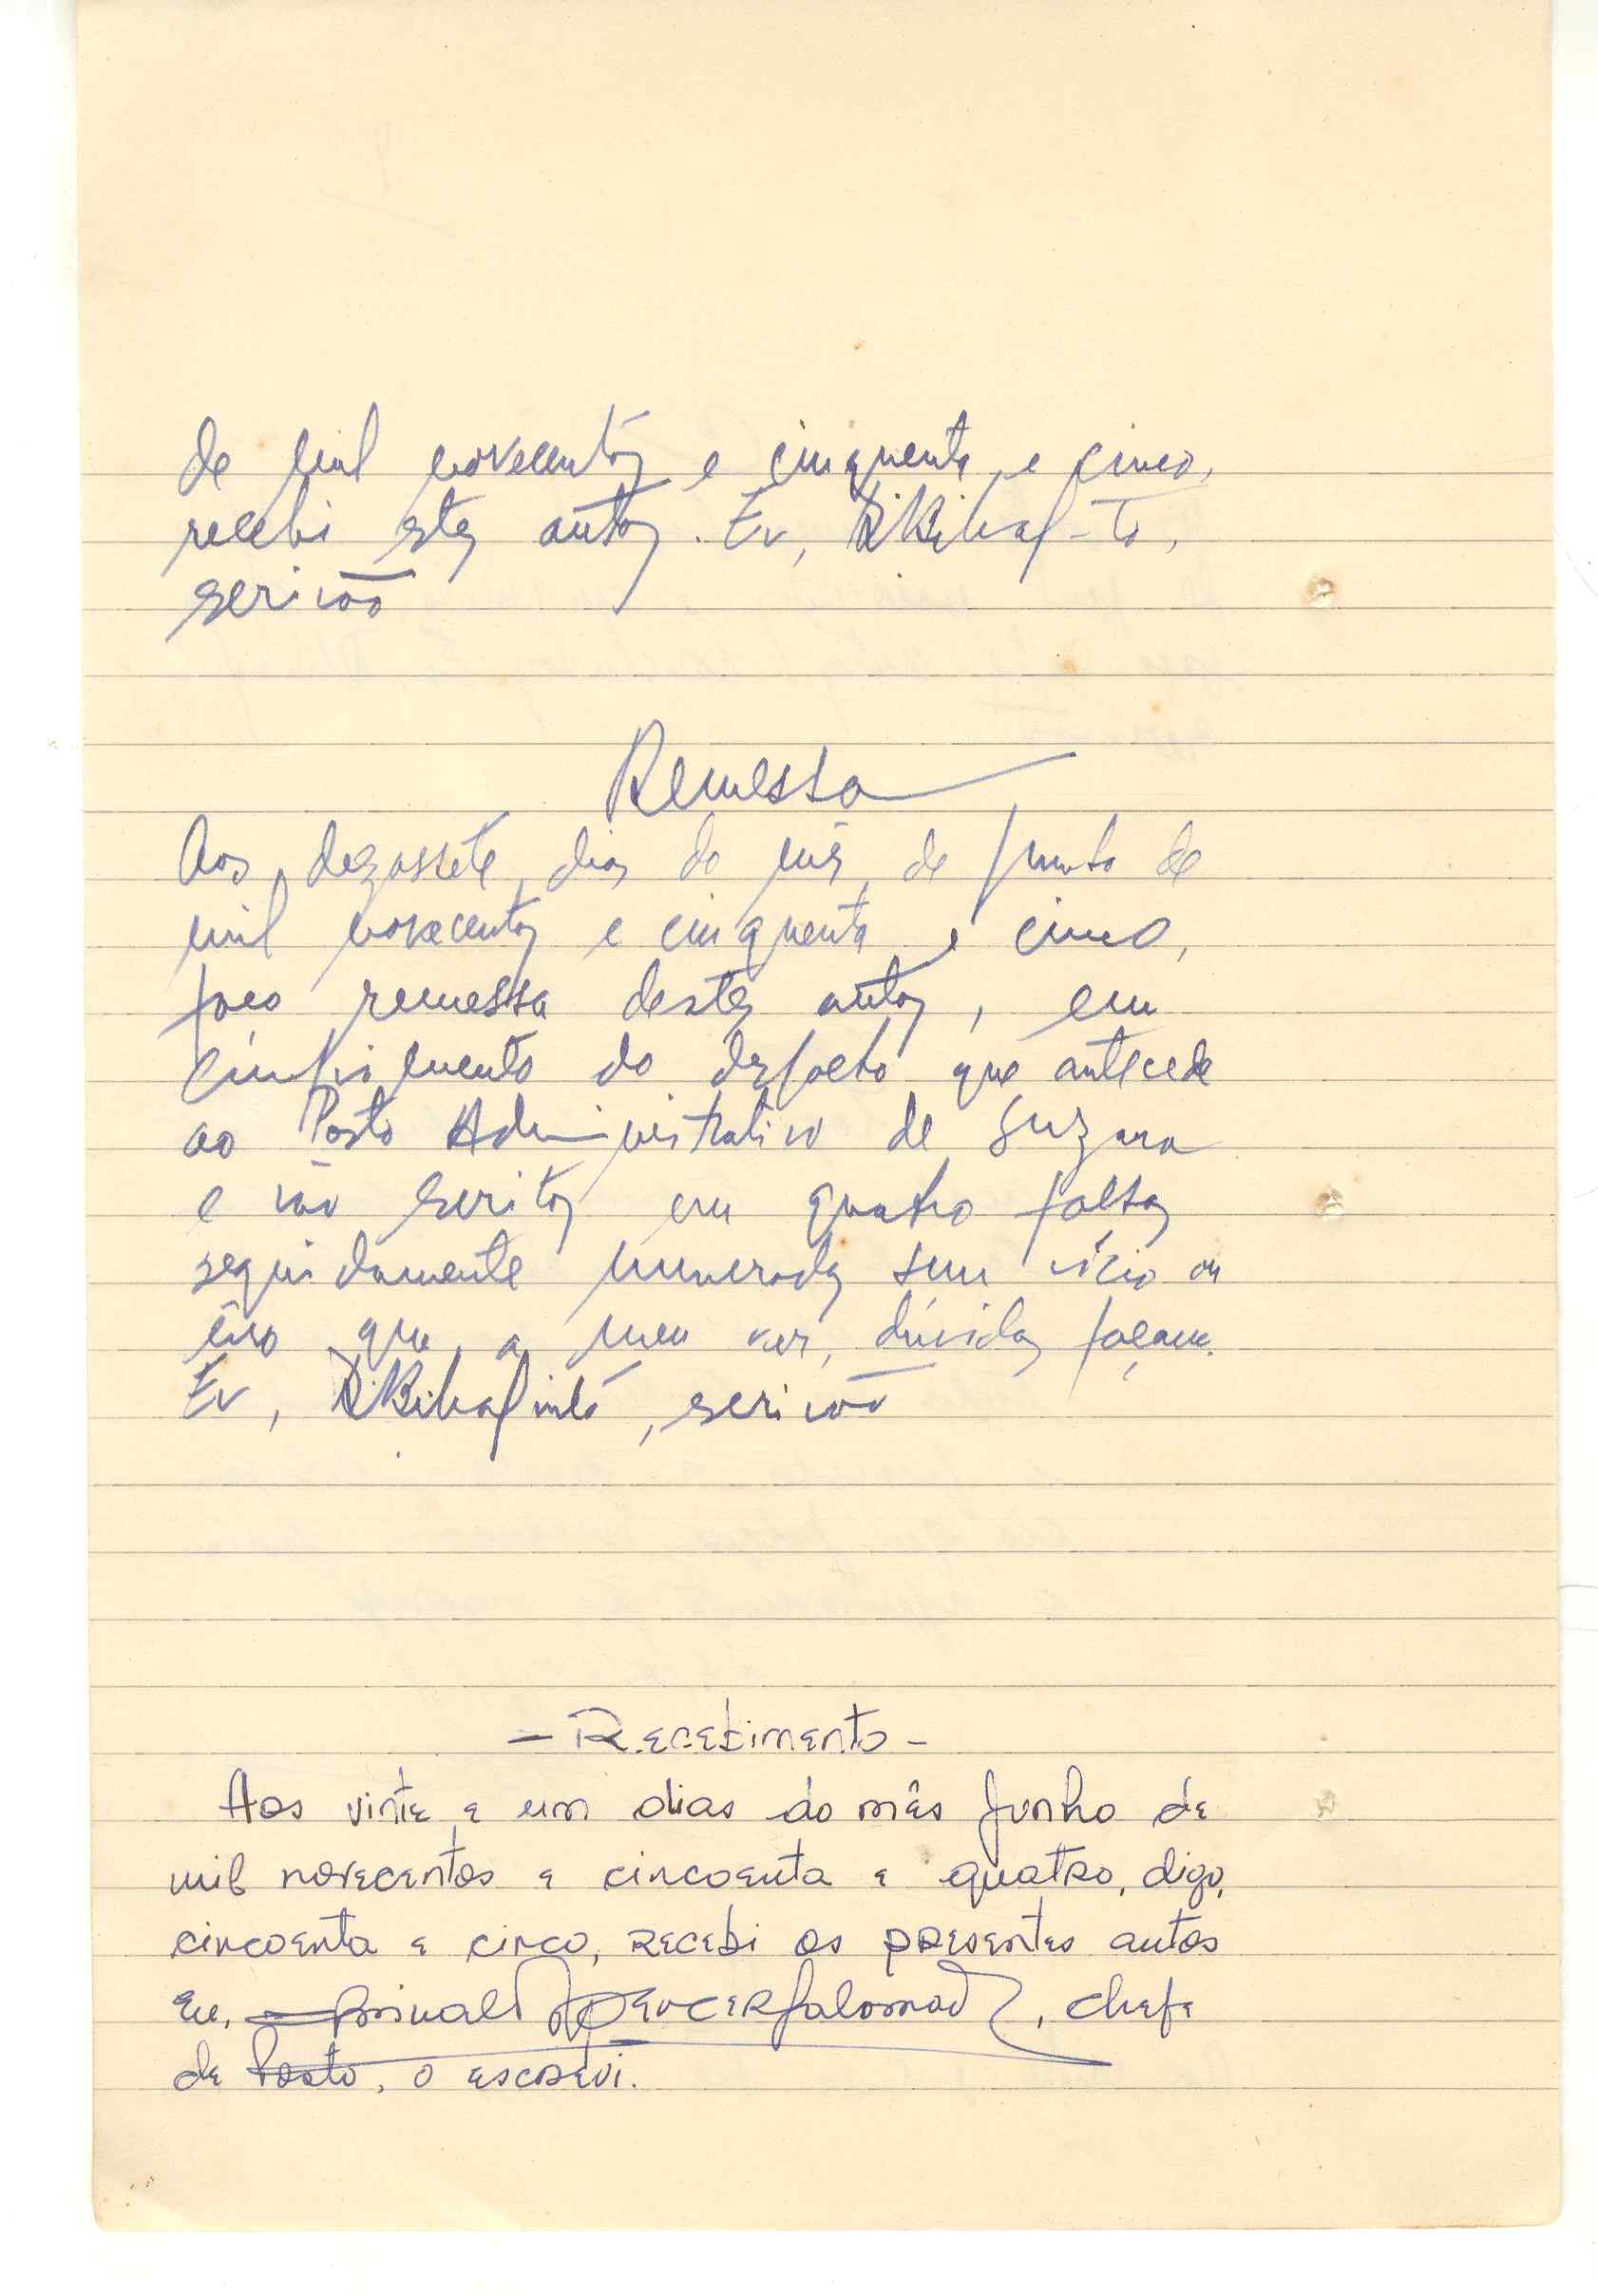 de mil novecentos e cinquenta e cinco,
recebi estes autos. Eu,
escrivão
Remessa
Aos dezassete dias do mês de Junho de
mil novecentos e cinquenta e cinco,
faço remessa destes autos, em
cumprimento do despacho que antecede
ao Posto Administrativo de Suzana
e vão escritos em quatro folhas
seguidamente numeradas sem vício ou
êrro que a meu ver, dúvidas façam.
Eu, escrivão
- Recebimento -
Aos vinte e um dias do mês Junho de
mil novecentos e cincoenta e quatro, digo,
cincoenta e cinco, recebi os presentes autos
Eu, chefe
de Posto, o escrevi.